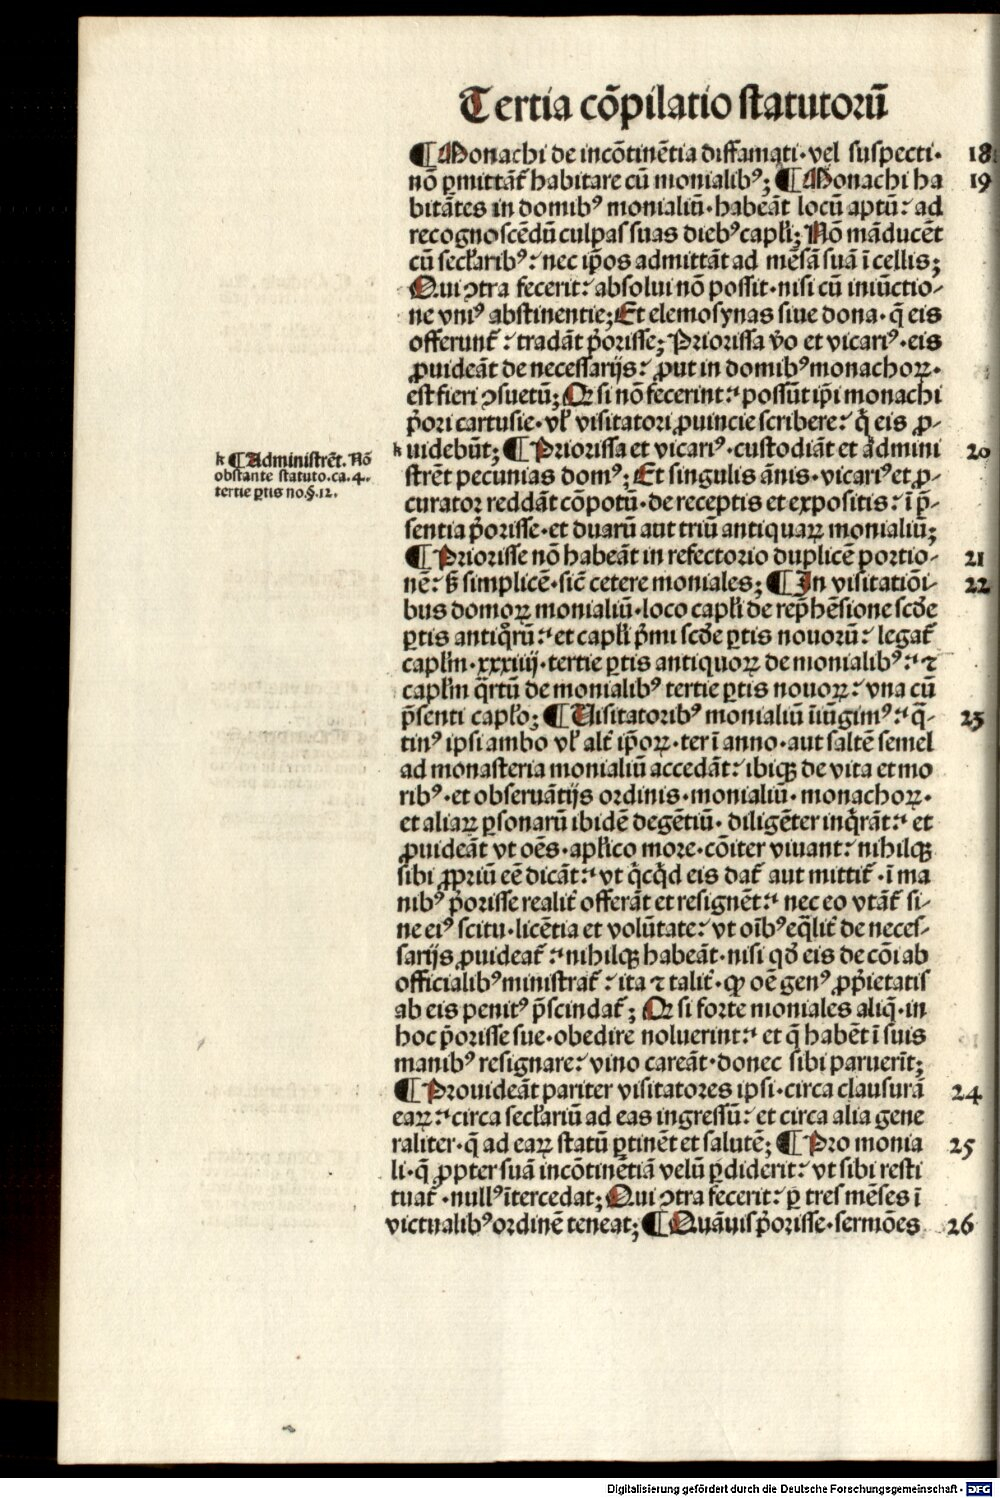 Tertia cõpilatio statutorũ
¶Monachi de incõtinẽtia diffamati·vel suspecti· 18
nõ ꝑmittãt᷑ habitare cũ monialibꝰ; ¶Monachi ha 19
bitãtes in domibꝰ monialiũ·habeãt locũ aptũ: ad
recognoscẽdũ culpas suas diebꝰ capl̃i; Nõ mãducẽt
cũ secl̃aribꝰ: nec ip̃os admittãt ad mẽsã suã ĩ cellis;
Qui ↄtra fecerit: absolui nõ possit·nisi cũ iniũctio-
ne vniꝰ abstinentie; Et elemosynas siue dona·q̃ eis
offerunt᷑: tradãt p̃orisse; Priorissa v̾o et vicariꝰ·eis
ꝓuideãt de necessarijs: ꝓut in domibꝰ monachoꝝ·
est fieri ↄsuetũ; Qꝛ si nõ fecerint: possũt ip̃i monachi
p̃ori cartusie·vl̾ visitatori ꝓuincie scribere: q̃ eis ꝓ-
k uidebũt; ¶Priorissa et vicariꝰ·custodiãt et admini 20
strẽt pecunias domꝰ; Et singulis ãnis·vicariꝰ et ꝓ-
curator reddãt cõpotũ·de receptis et expositis: ĩ p̃-
sentia p̃orisse·et duarũ aut triũ antiquaꝝ monialiũ;
¶Priorisse nõ habeãt in refectorio duplicẽ portio- 21
nẽ: s̾ simplicẽ·sic̃ cetere moniales; ¶In visitatiõi- 22
bus domoꝝ monialiũ·loco capl̃i de rep̃hẽsione scd̾e
ꝑtis antiq̃rũ: et capl̃i p̃mi scd̾e ꝑtis nouorũ: legat᷑
capl̃m·xxxiiij·tertie ꝑtis antiquoꝝ de monialibꝰ: ⁊
capl̃m q̃rtũ de monialibꝰ tertie ꝑtis nouoꝝ: vna cũ
p̃senti capl̃o; ¶Uisitatoribꝰ monialiũ iniũgimꝰ: q̃- 23
tinꝰ ipsi ambo vl̾ alt̾ ip̃oꝝ·ter ĩ anno·aut saltẽ semel
ad monasteria monialiũ accedãt: ibiqꝫ de vita et mo
ribꝰ·et obseruãtijs ordinis·monialiũ·monachoꝝ·
et aliaꝝ ꝑsonarũ ibidẽ degẽtiũ·diligẽter inq̃rãt: et
ꝓuideãt vt oẽs·apl̃ico more·cõiter viuant: nihilqꝫ
sibi ꝓpriũ eẽ dicãt: vt q̃cq̃d eis dat᷑ aut mittit᷑·ĩ ma
nibꝰ p̃orisse realit̾ offerãt et resignẽt: nec eo vtãt᷑ si-
ne eiꝰ scitu·licẽtia et volũtate: vt oĩbꝰ eq̃lit̾ de neces-
sarijs ꝓuideat᷑: nihilqꝫ habeãt·nisi qd̾ eis de cõi ab
officialibꝰ ministrat᷑: ita ⁊ talit̾·ꝙ oẽ genꝰ ꝓp̃ietatis
ab eis penitꝰ p̃scindat᷑; Qꝛ si forte moniales aliq̃·in
hoc p̃orisse sue·obedire noluerint: et q̃ habẽt ĩ suis
manibꝰ resignare: vino careãt·donec sibi paruerĩt;
¶Prouideãt pariter visitatores ipsi·circa clausurã 24
eaꝝ: circa secl̃ariũ ad eas ingressũ: et circa alia gene
raliter·q̃ ad eaꝝ statũ ꝑtinẽt et salutẽ; ¶Pro monia 25
li·q̃ ꝓpter suã incõtinẽtiã velũ ꝑdiderit: vt sibi resti
tuat᷑·nullꝰ ĩtercedat; Qui ↄtra fecerit: ꝑ tres mẽses ĩ
victualibꝰ ordinẽ teneat; ¶Quãuis p̃orisse·sermões 26
k ¶Administrẽt. Nõ
obstante statuto.ca.4.
tertie ꝑtis no.§.12.
Digitalisierung gefördert durch die Deutsche Forschungsgemeinschaft - DFG